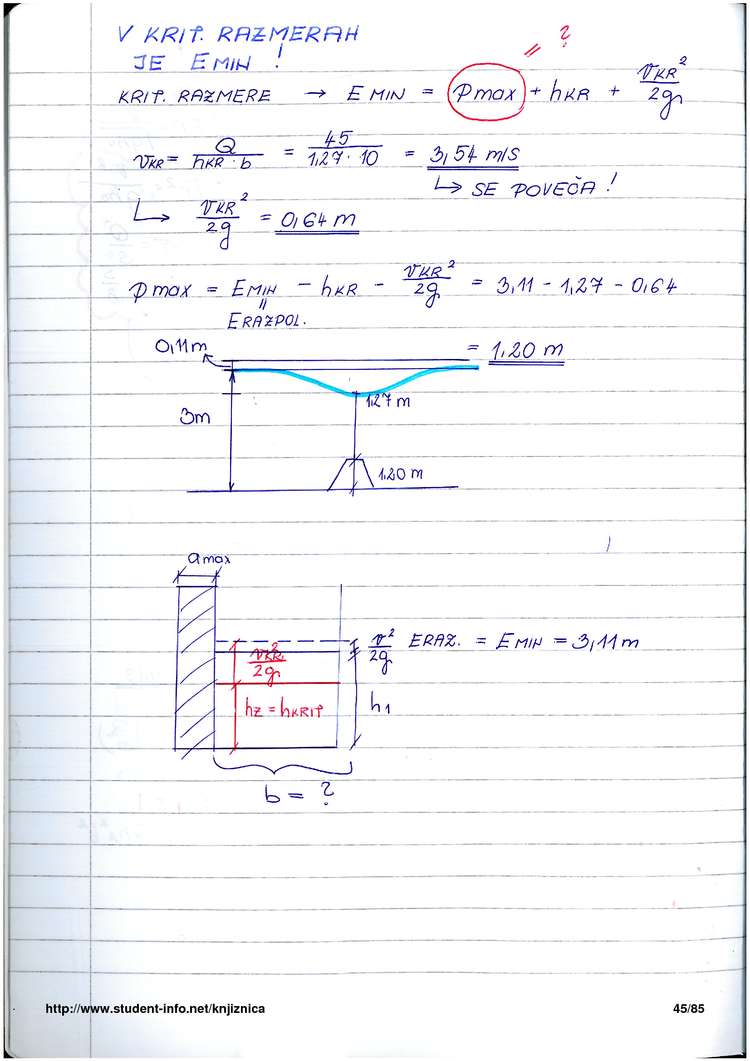 V KRIT. RAZMERAH
JE EMIN !
?
KRIT. RAZMERE → E MIN = pmax + hKR + vKR²/2g
vKR = Q/hKR · b = 45/1,27 · 10 = 3,54 m/s
↳ SE POVEČA !
↳ vKR²/2g = 0,64 m
pmax = EMIN - hKR - vKR²/2g = 3,11 - 1,27 - 0,64
ERAZPOL.
0,11m
= 1,20 m
1,27 m
3m
1,20 m
amax
v²/2g ERAZ. = EMIN = 3,11 m
vKR²/2g
hz = hKRIT
h1
b = ?
http://www.student-info.net/knjiznica
45/85